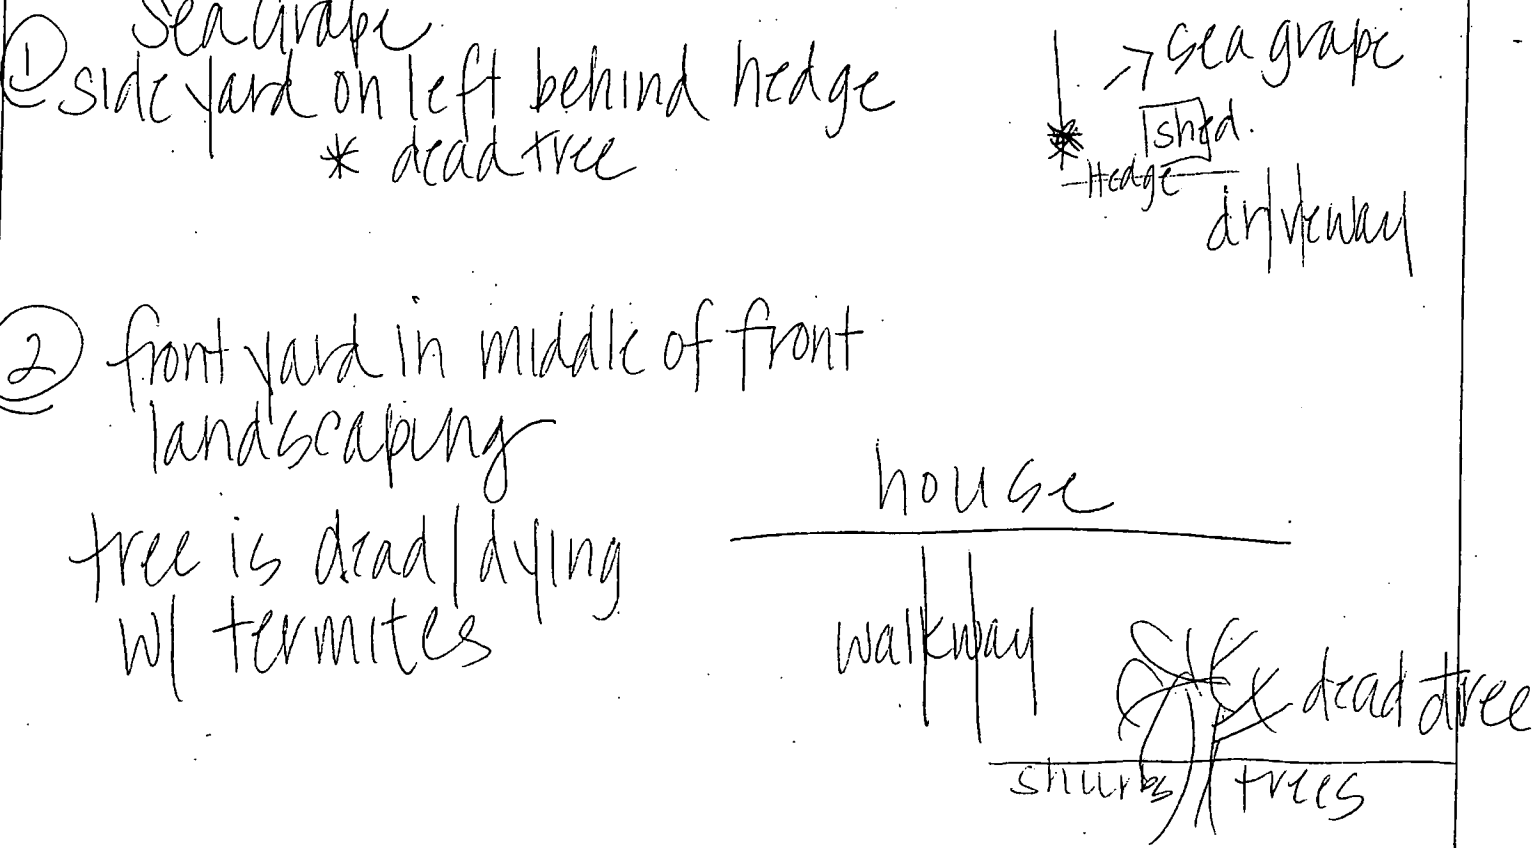 Sea Grape
① side yard on left behind hedge
* dead tree
→ sea grape
shed.
Hedge
driveway
② front yard in middle of front
landscaping
tree is dead/dying
w/ termites
house
walkway
dead tree
shurbs
trees